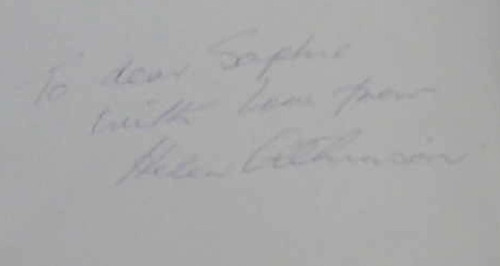 To dear Sophie
with love from
Helen Atkinson